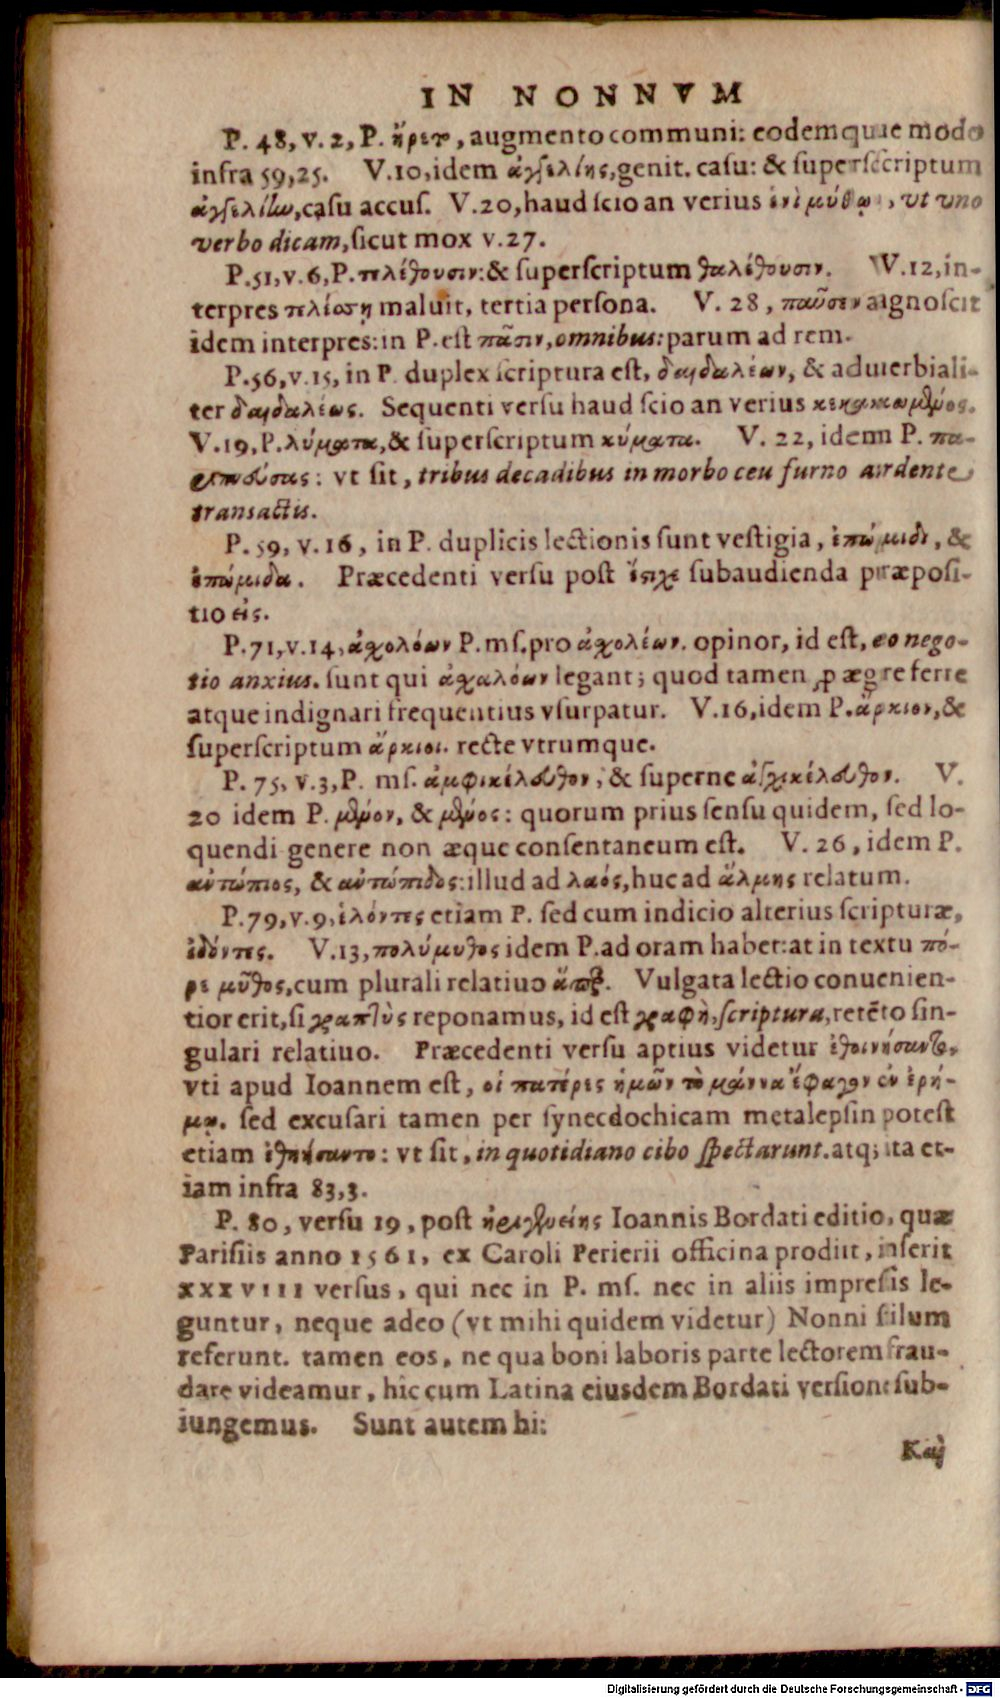 IN NONNVM
P. 48, v. 2, P. ἤρετο, augmento communi: eodemque modo
infra 59, 25. V. 10, idem ἀγγελίης, genit. casu: & superscriptum
ἀγγελίην, casu accus. V. 20, haud scio an verius ἑνὶ μύθῳ, vt vno
verbo dicam, sicut mox v. 27.
P. 51, v. 6, P. πελέθουσιν: & superscriptum θαλέθουσιν. V. 12, in-
terpres maluit, tertia persona. V. 28, παῦσεν agnoscit
idem interpres: in P. est πᾶσιν, omnibus: parum ad rem.
P. 56, v. 15, in P. duplex scriptura est, δαιδαλέων, & aduerbiali-
ter δαιδαλέως. Sequenti versu haud scio an verius
V. 19, P. λύματα, & superscriptum κύματα. V. 22, idem P.
: vt sit, tribus decadibus in morbo ceu furno ardente
transactis.
P. 59, v. 16, in P. duplicis lectionis sunt vestigia, ἐπώμιδι, &
ἐπώμιδα. Præcedenti versu post subaudienda præposi-
tio εἰς.
P. 71, v. 14, ἀχολόων P. ms. pro ἀχολέων. opinor, id est, eo nego-
tio anxius. sunt qui ἀχαλόων legant; quod tamen p ægre ferre
atque indignari frequentius vsurpatur. V. 16, idem P. ἄρκιον, &
superscriptum ἄρκιοι. recte vtrumque.
P. 75, v. 3, P. ms. ἀμφικέλευθον, & superne ἀγχικέλευθον. V.
20 idem P. μένον, & μένος: quorum prius sensu quidem, sed lo-
quendi genere non æque consentaneum est. V. 26, idem P.
αὐτώπιος, & αὐτώπιδος: illud ad λαός, huc ad ἅλμης relatum.
P. 79, v. 9, ἑλόντες etiam P. sed cum indicio alterius scripturæ,
ἰδόντες. V. 13, πολύμυθος idem P. ad oram habet: at in textu πό-
ρε μῦθος, cum plurali relatiuo ἅπερ. Vulgata lectio conuenien-
tior erit, si γραπτὺς reponamus, id est γραφὴ, scriptura, retēto sin-
gulari relatiuo. Præcedenti versu aptius videtur ἐθοινήσαντο,
vti apud Ioannem est, οἱ πατέρες ἡμῶν τὸ μάννα ἔφαγον ἐν ἐρή-
μῳ. sed excusari tamen per synecdochicam metalepsin potest
etiam ἐθηήσαντο: vt sit, in quotidiano cibo spectarunt. atq; ita et-
iam infra 83, 3.
P. 80, versu 19, post ἠριγενείης Ioannis Bordati editio, quæ
Parisiis anno 1561, ex Caroli Perierii officina prodiit, inserit
XXXVIII versus, qui nec in P. ms. nec in aliis impressis le-
guntur, neque adeo (vt mihi quidem videtur) Nonni stilum
referunt. tamen eos, ne qua boni laboris parte lectorem frau-
dare videamur, hic cum Latina eiusdem Bordati versione sub-
iungemus. Sunt autem hi:
Καὶ
Digitalisierung gefördert durch die Deutsche Forschungsgemeinschaft - DFG